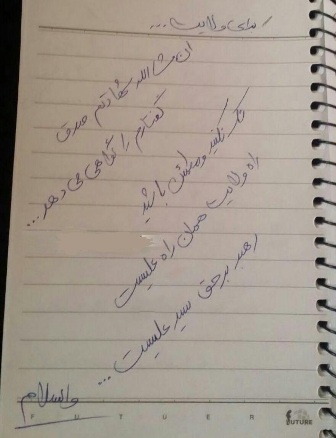 راه ولایت...
ان شاالله شهادتم صدق
گفتارم را گواهی می دهد...
شک نکنید و مطمئن باشید
راه ولایت همان راه علیست
رهبر برحق سید علیست...
والسلام
FUTURE
FUTURE